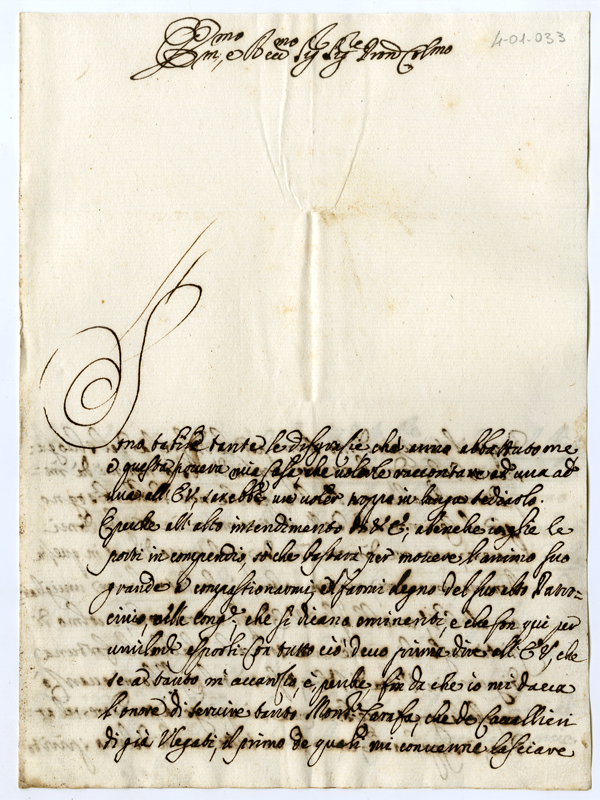 4-01-033
Em.mo e R.mo Sig.r Sig.r Pron Col.mo
Sono tali e tante le disgrazie che anno abbattuto me
e questa povera mia Casa, che volerle raccontare ad una ad
una all' E.V. sarebbe un voler troppo in lungo tediarlo.
E perche all' alto intendimento di V.E. abenche io ghe le
porti in compendio, sò che bastarà per movere l'animo suo
grande a compassionarmi, e farmi degno del suo alto Patro=
cinio, nelle che si dicano e che son qui per
umilm.te esporli. Con tutto ciò devo prima dire all' E.V. che
se a tanto m' accenso, è, perche fin da che io mi dava
l'onore di servire tanto Mons.r Carafa, che de Cavallieri
di già Vlegati, il primo de quali mi convenne lasciare